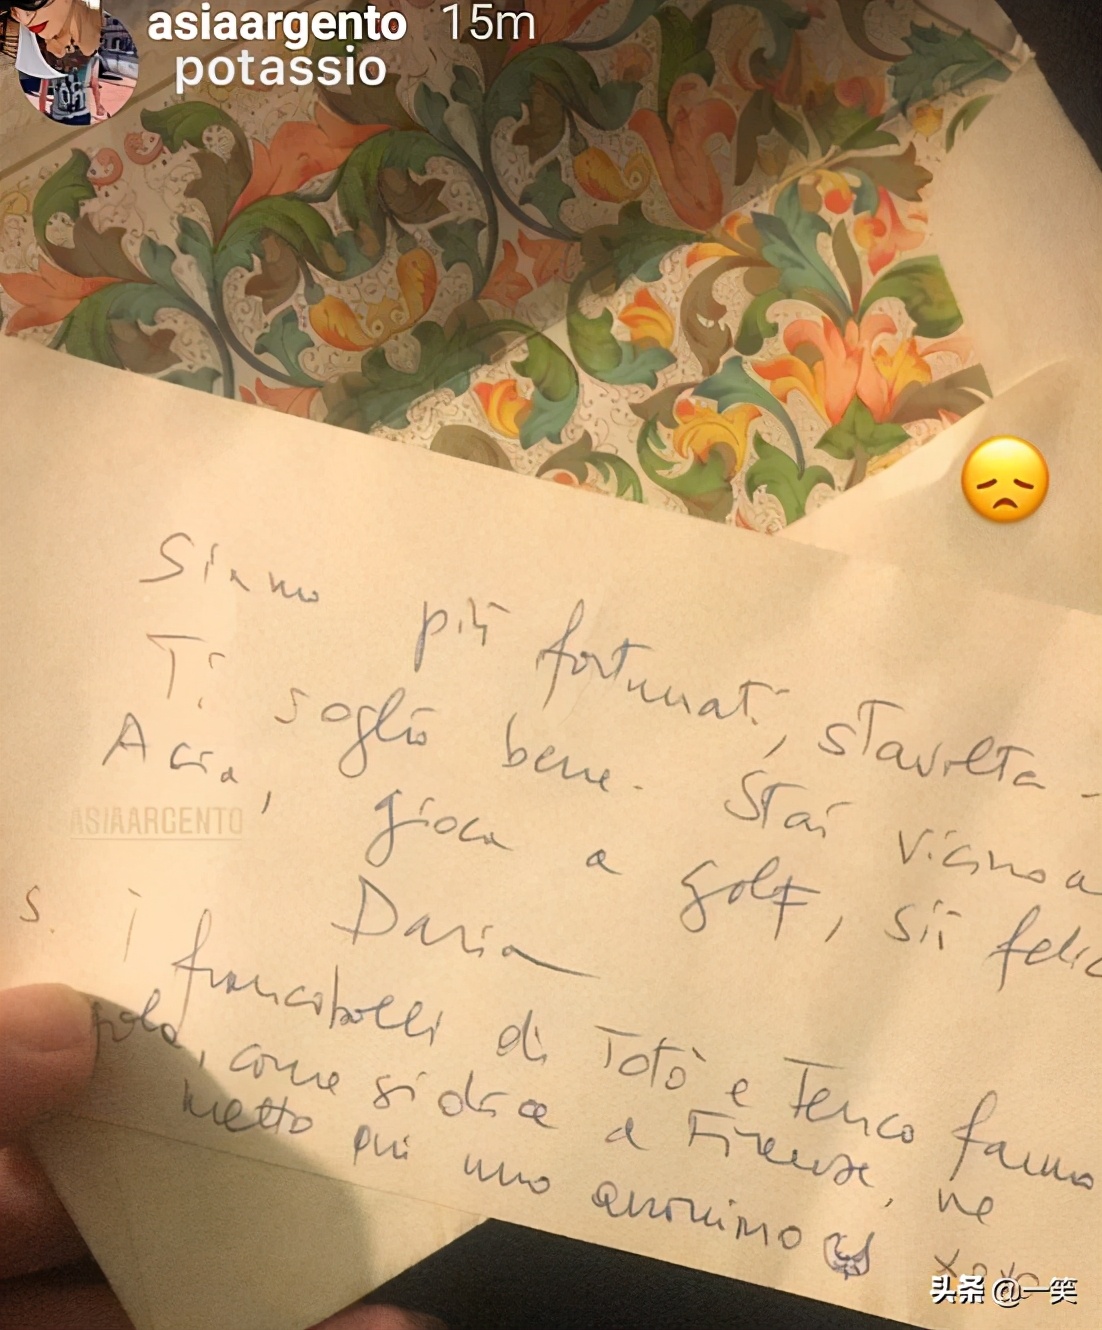 asiaargento 15m
potassio
Siamo più fortunati, stavolta.
Ti voglio bene. Stai vicino a
gioca a golf, sii felic
ASIAARGENTO
Daria
S. I francobolli di Totò e Tenco fanno
gola, come si dice a Firenze, ne
metto qui uno anonimo
xoxo
头条 @一笑